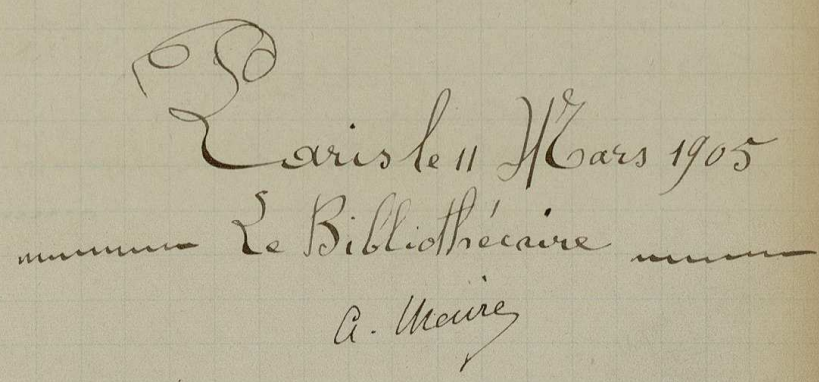 Paris le 11 Mars 1905
Le Bibliothécaire
A. Maire